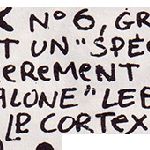 N°6, GR
T UN "SPÉC
EREMENT
ALONE" LEE
LE CORTEX